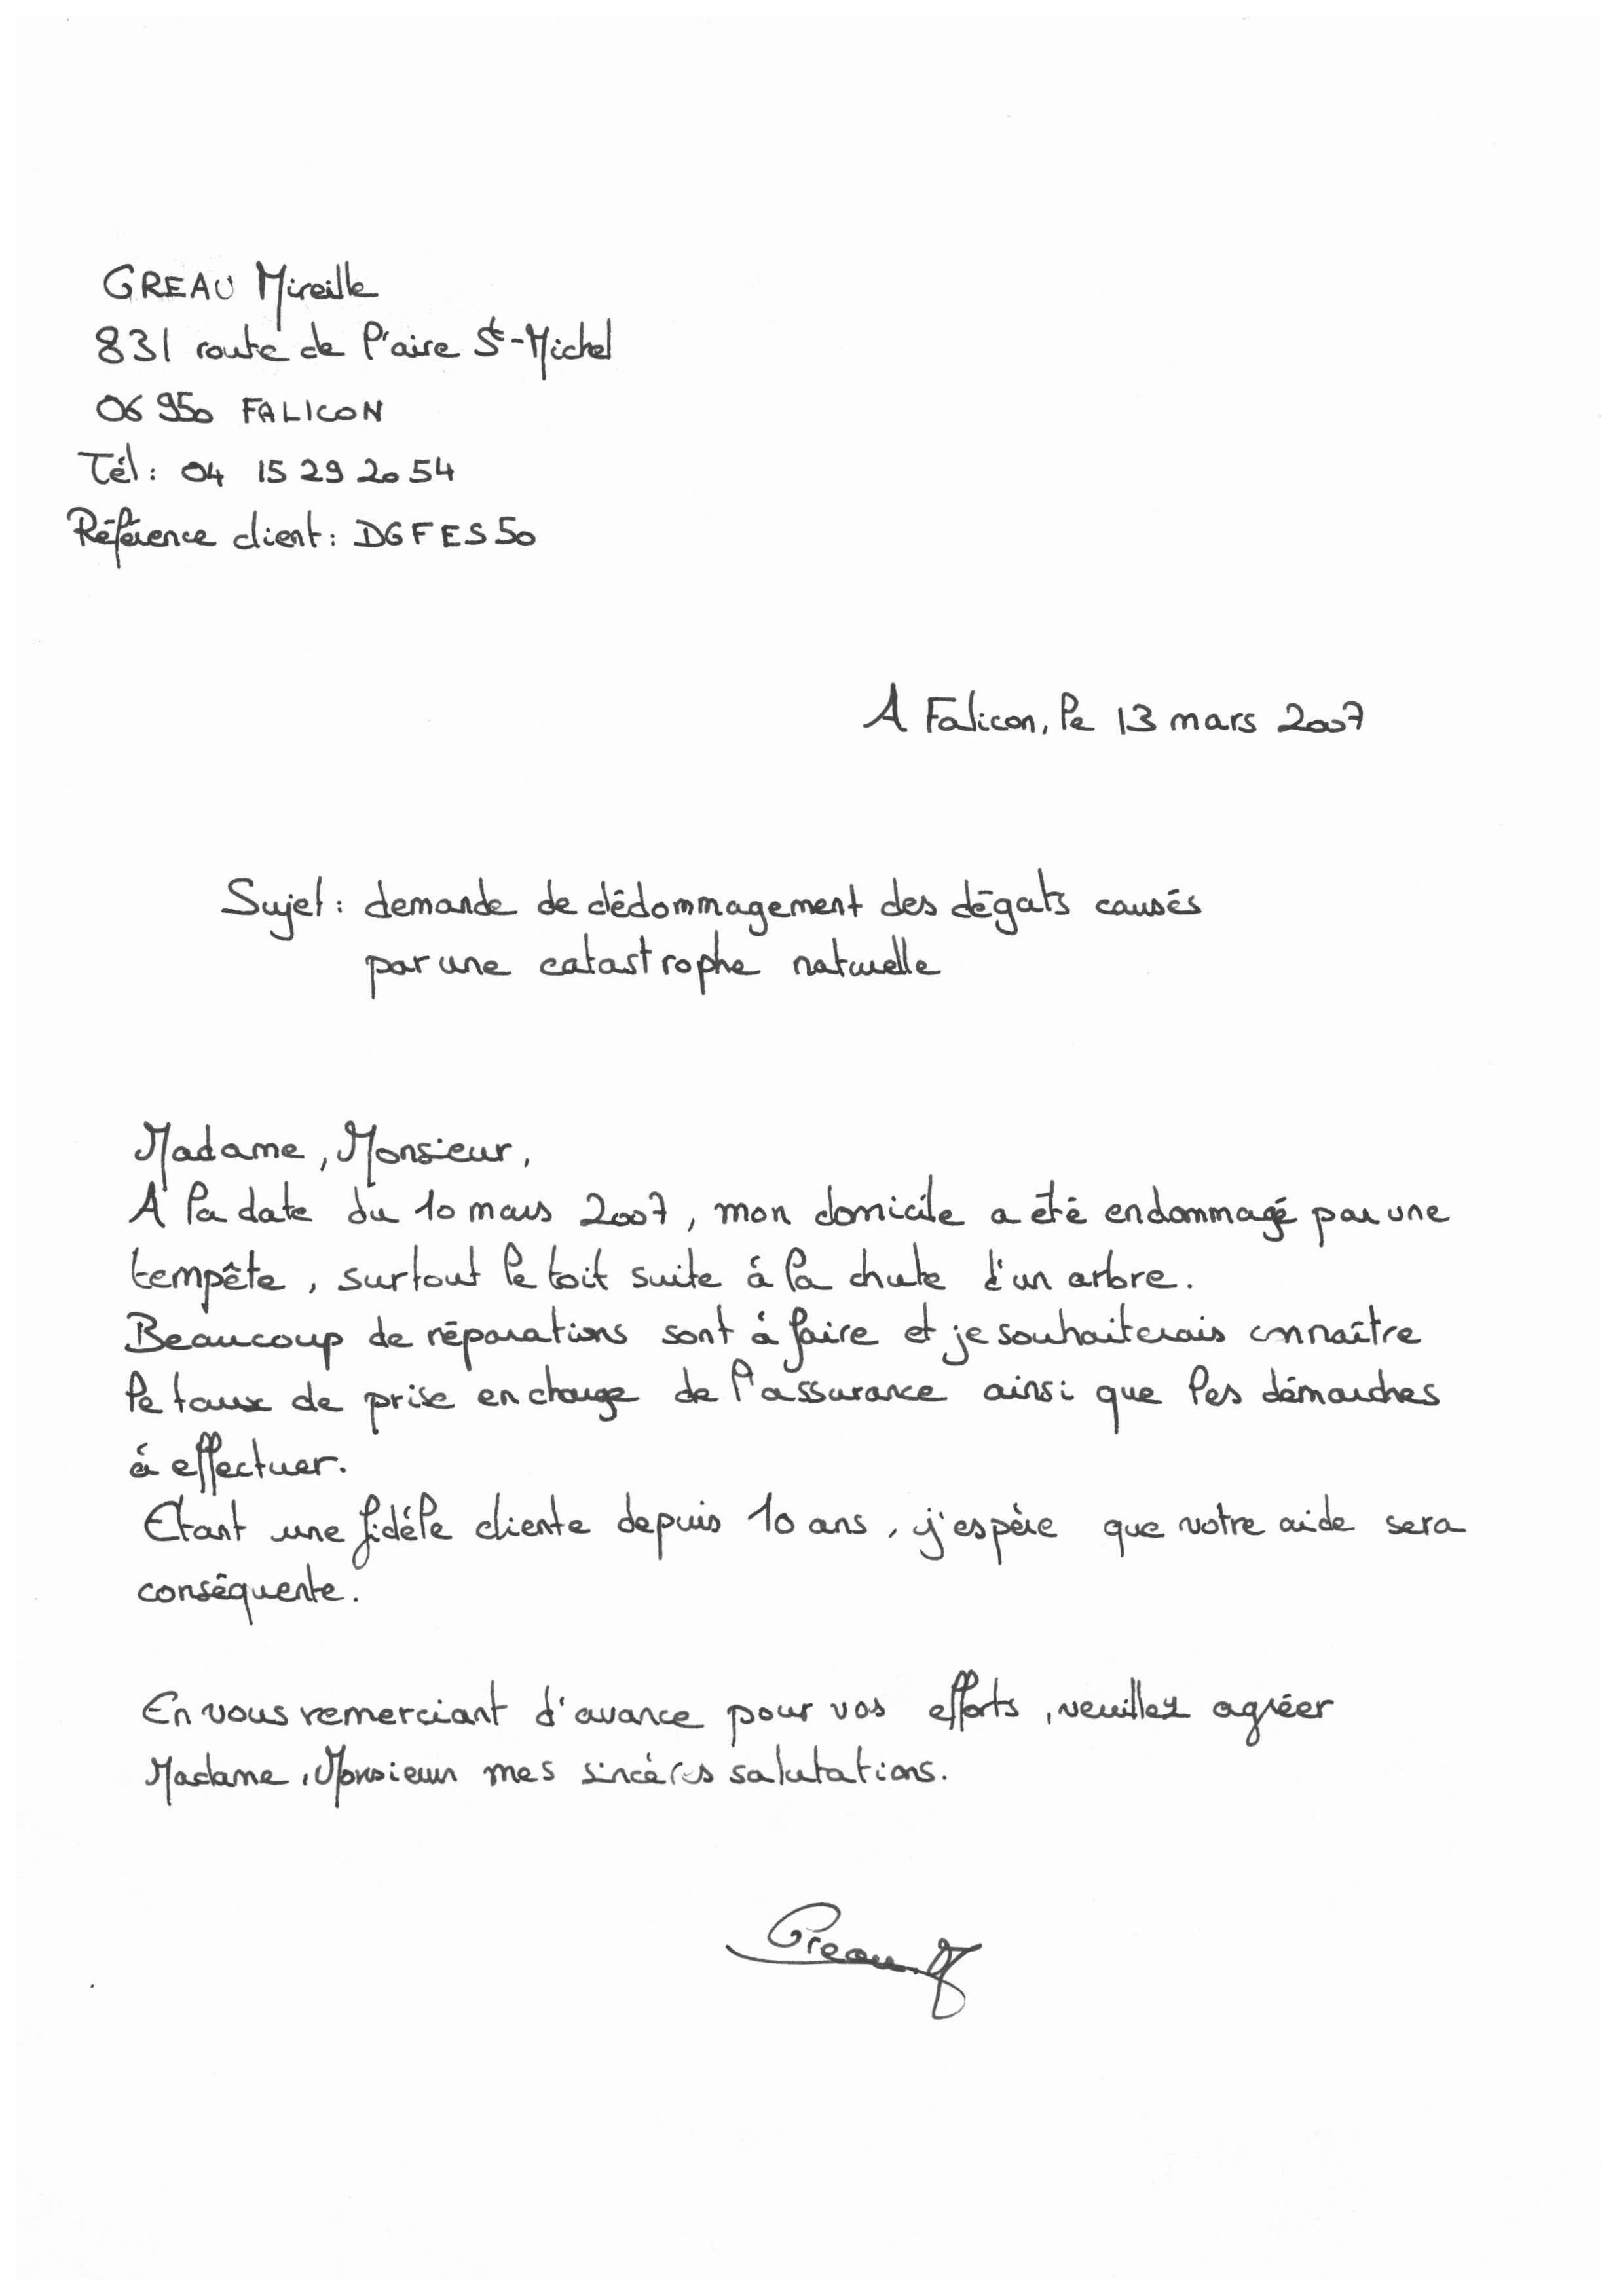 GREAU Mireille
831 route de l'aire St-Michel
06 950 FALICON
Tél : 04 15 29 20 54
Référence client : DGFES50
A Falicon, le 13 mars 2007
Sujet : demande de dédommagement des dégats causés
par une catastrophe naturelle
Madame, Monsieur,
A la date du 10 mars 2007, mon domicile a été endommagé par une
tempête, surtout le toit suite à la chute d'un arbre.
Beaucoup de réparations sont à faire et je souhaiterais connaître
le taux de prise en charge de l'assurance ainsi que les démarches
à effectuer.
Etant une fidéle cliente depuis 10 ans, j'espère que votre aide sera
conséquente.
En vous remerciant d'avance pour vos efforts, veuillez agréer
Madame, Monsieur mes sincères salutations.
Greau.M